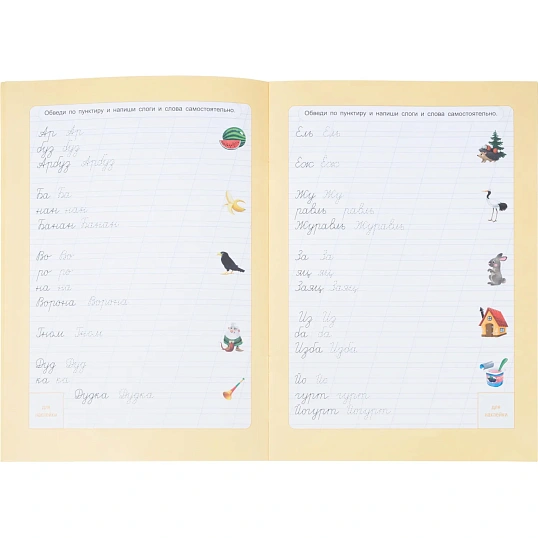 Обведи по пунктиру и напиши слоги и слова самостоятельно.
Ар Ар
буз буз
Арбуз Арбуз
Ба Ба
нан нан
Банан Банан
Во Во
ро ро
на на
Ворона Ворона
Гном Гном
Дуд Дуд
ка ка
Дудка Дудка
для наклейки
Обведи по пунктиру и напиши слоги и слова самостоятельно.
Ель Ель
Ёж
Жу Жу
равль равль
Журавль Журавль
За За
яц яц
Заяц Заяц
Из Из
ба ба
Изба Изба
Йо Йо
гурт гурт
Йогурт Йогурт
для наклейки